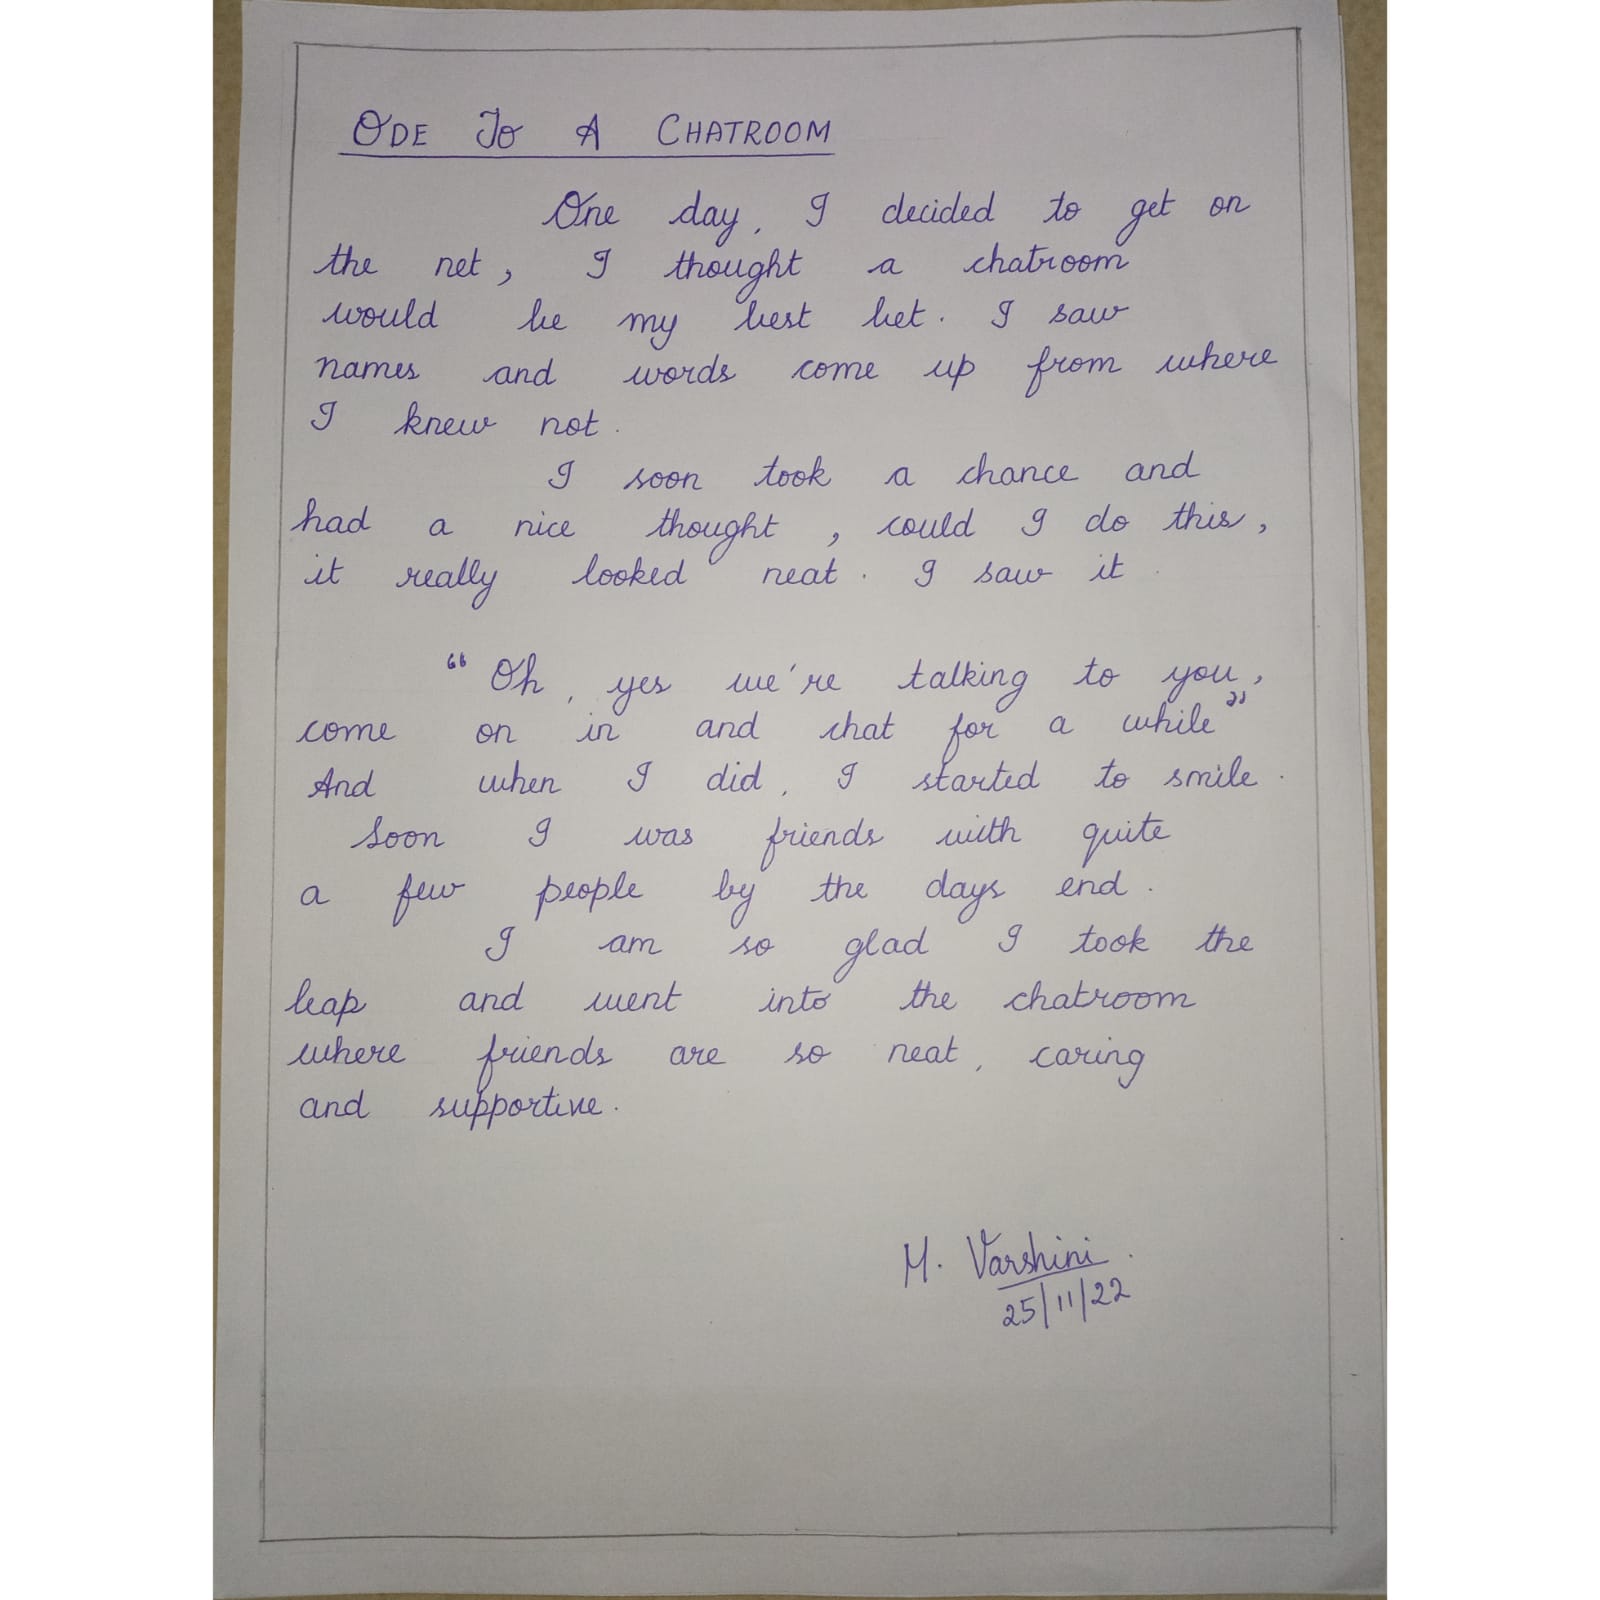 ODE TO A CHATROOM
One day, I decided to get on
the net, I thought a chatroom
would be my best bet. I saw
names and words come up from where
I knew not.
I soon took a chance and
had a nice thought, could I do this,
it really looked neat. I saw it.
"Oh, yes we're talking to you,
come on in and chat for a while"
And when I did, I started to smile.
Soon I was friends with quite
a few people by the days end.
I am so glad I took the
leap and went into the chatroom
where friends are so neat, caring
and supportive.
M. Varshini.
25/11/22